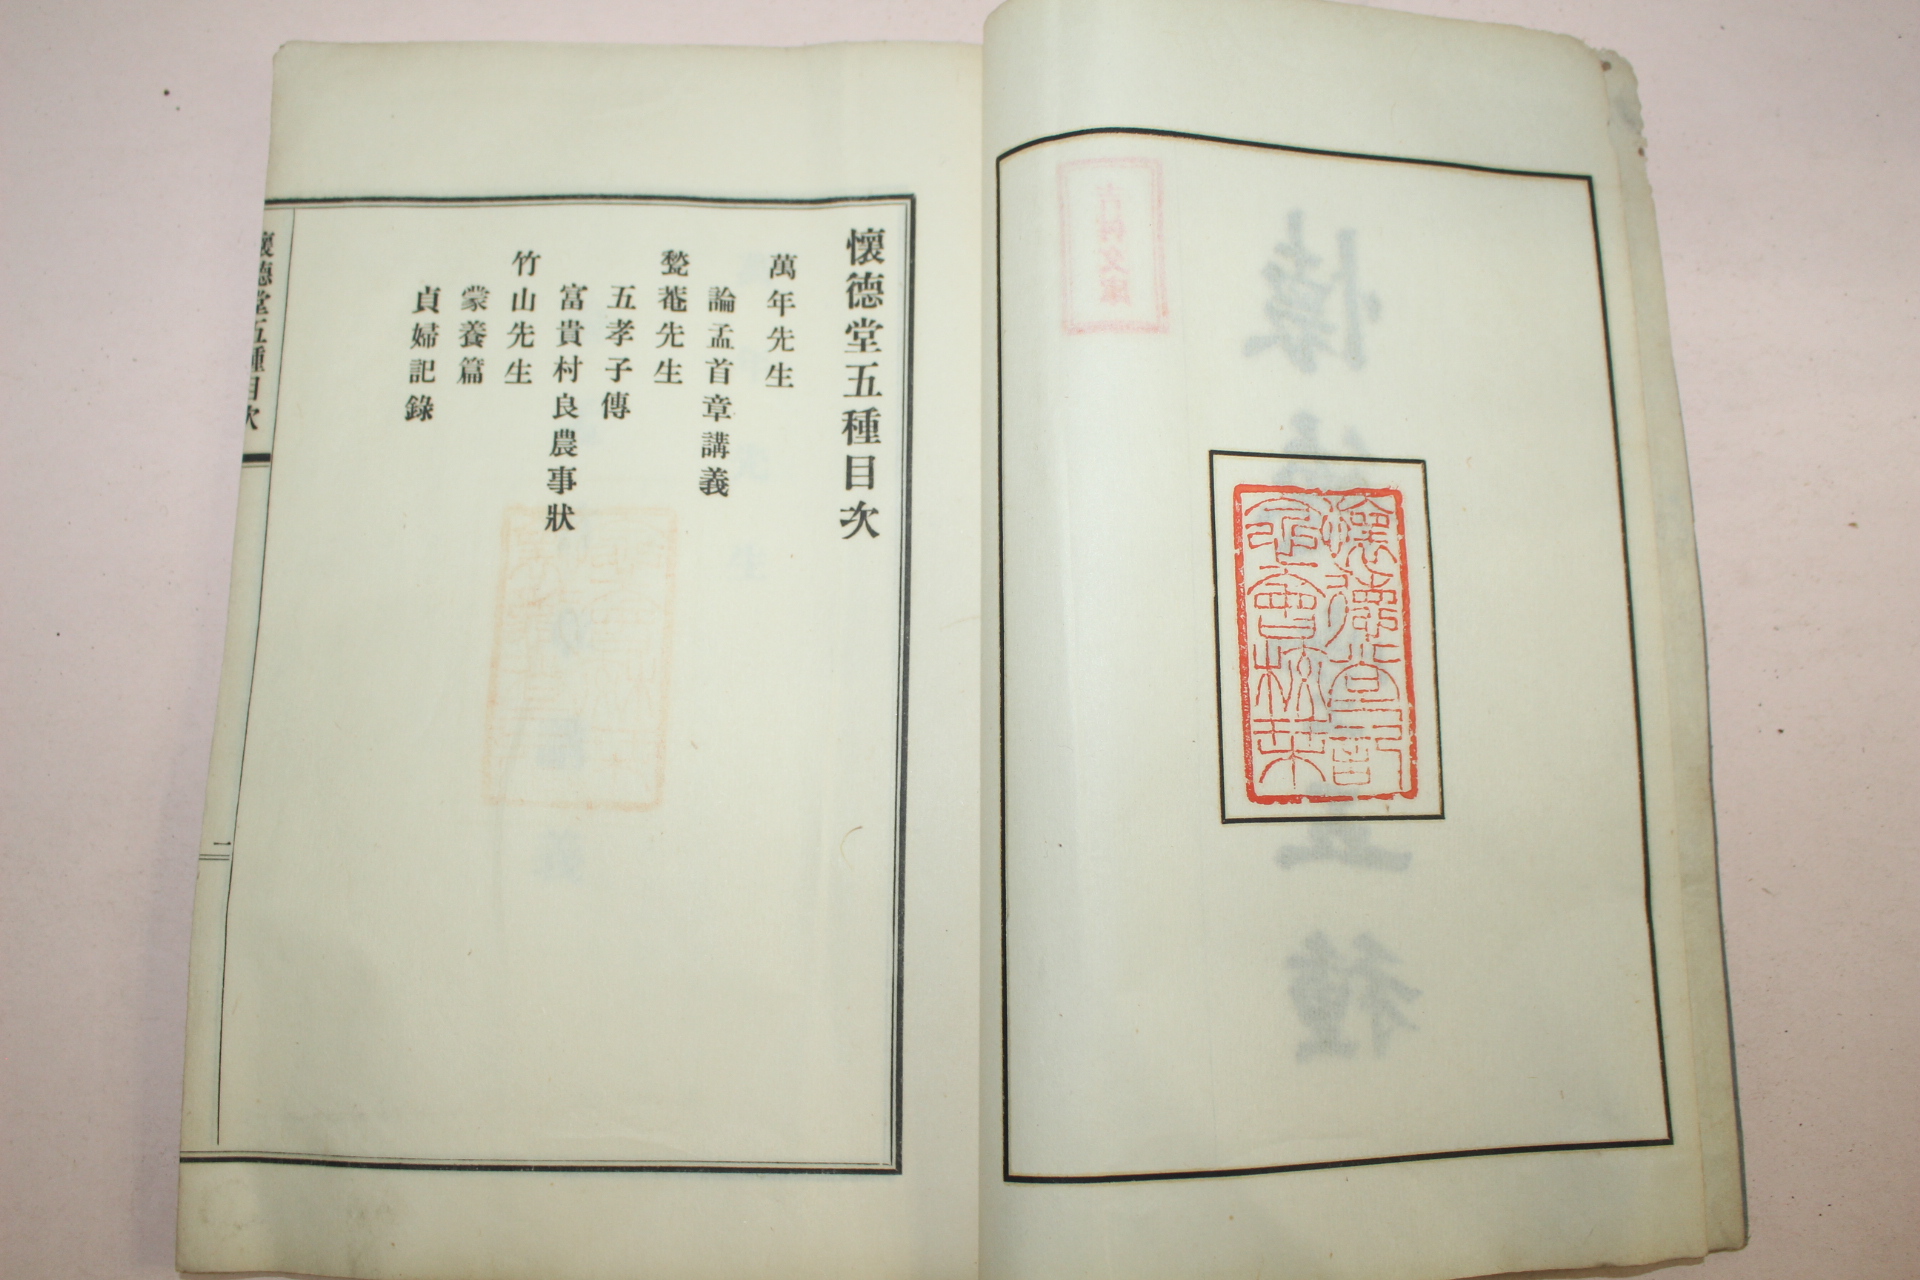 懷德堂記
念會恢栞
懷德堂五種目次
萬年先生
論孟首章講義
甃菴先生
五孝子傳
富貴村良農事狀
竹山先生
蒙養篇
貞婦記錄
懷德堂五種目次
一